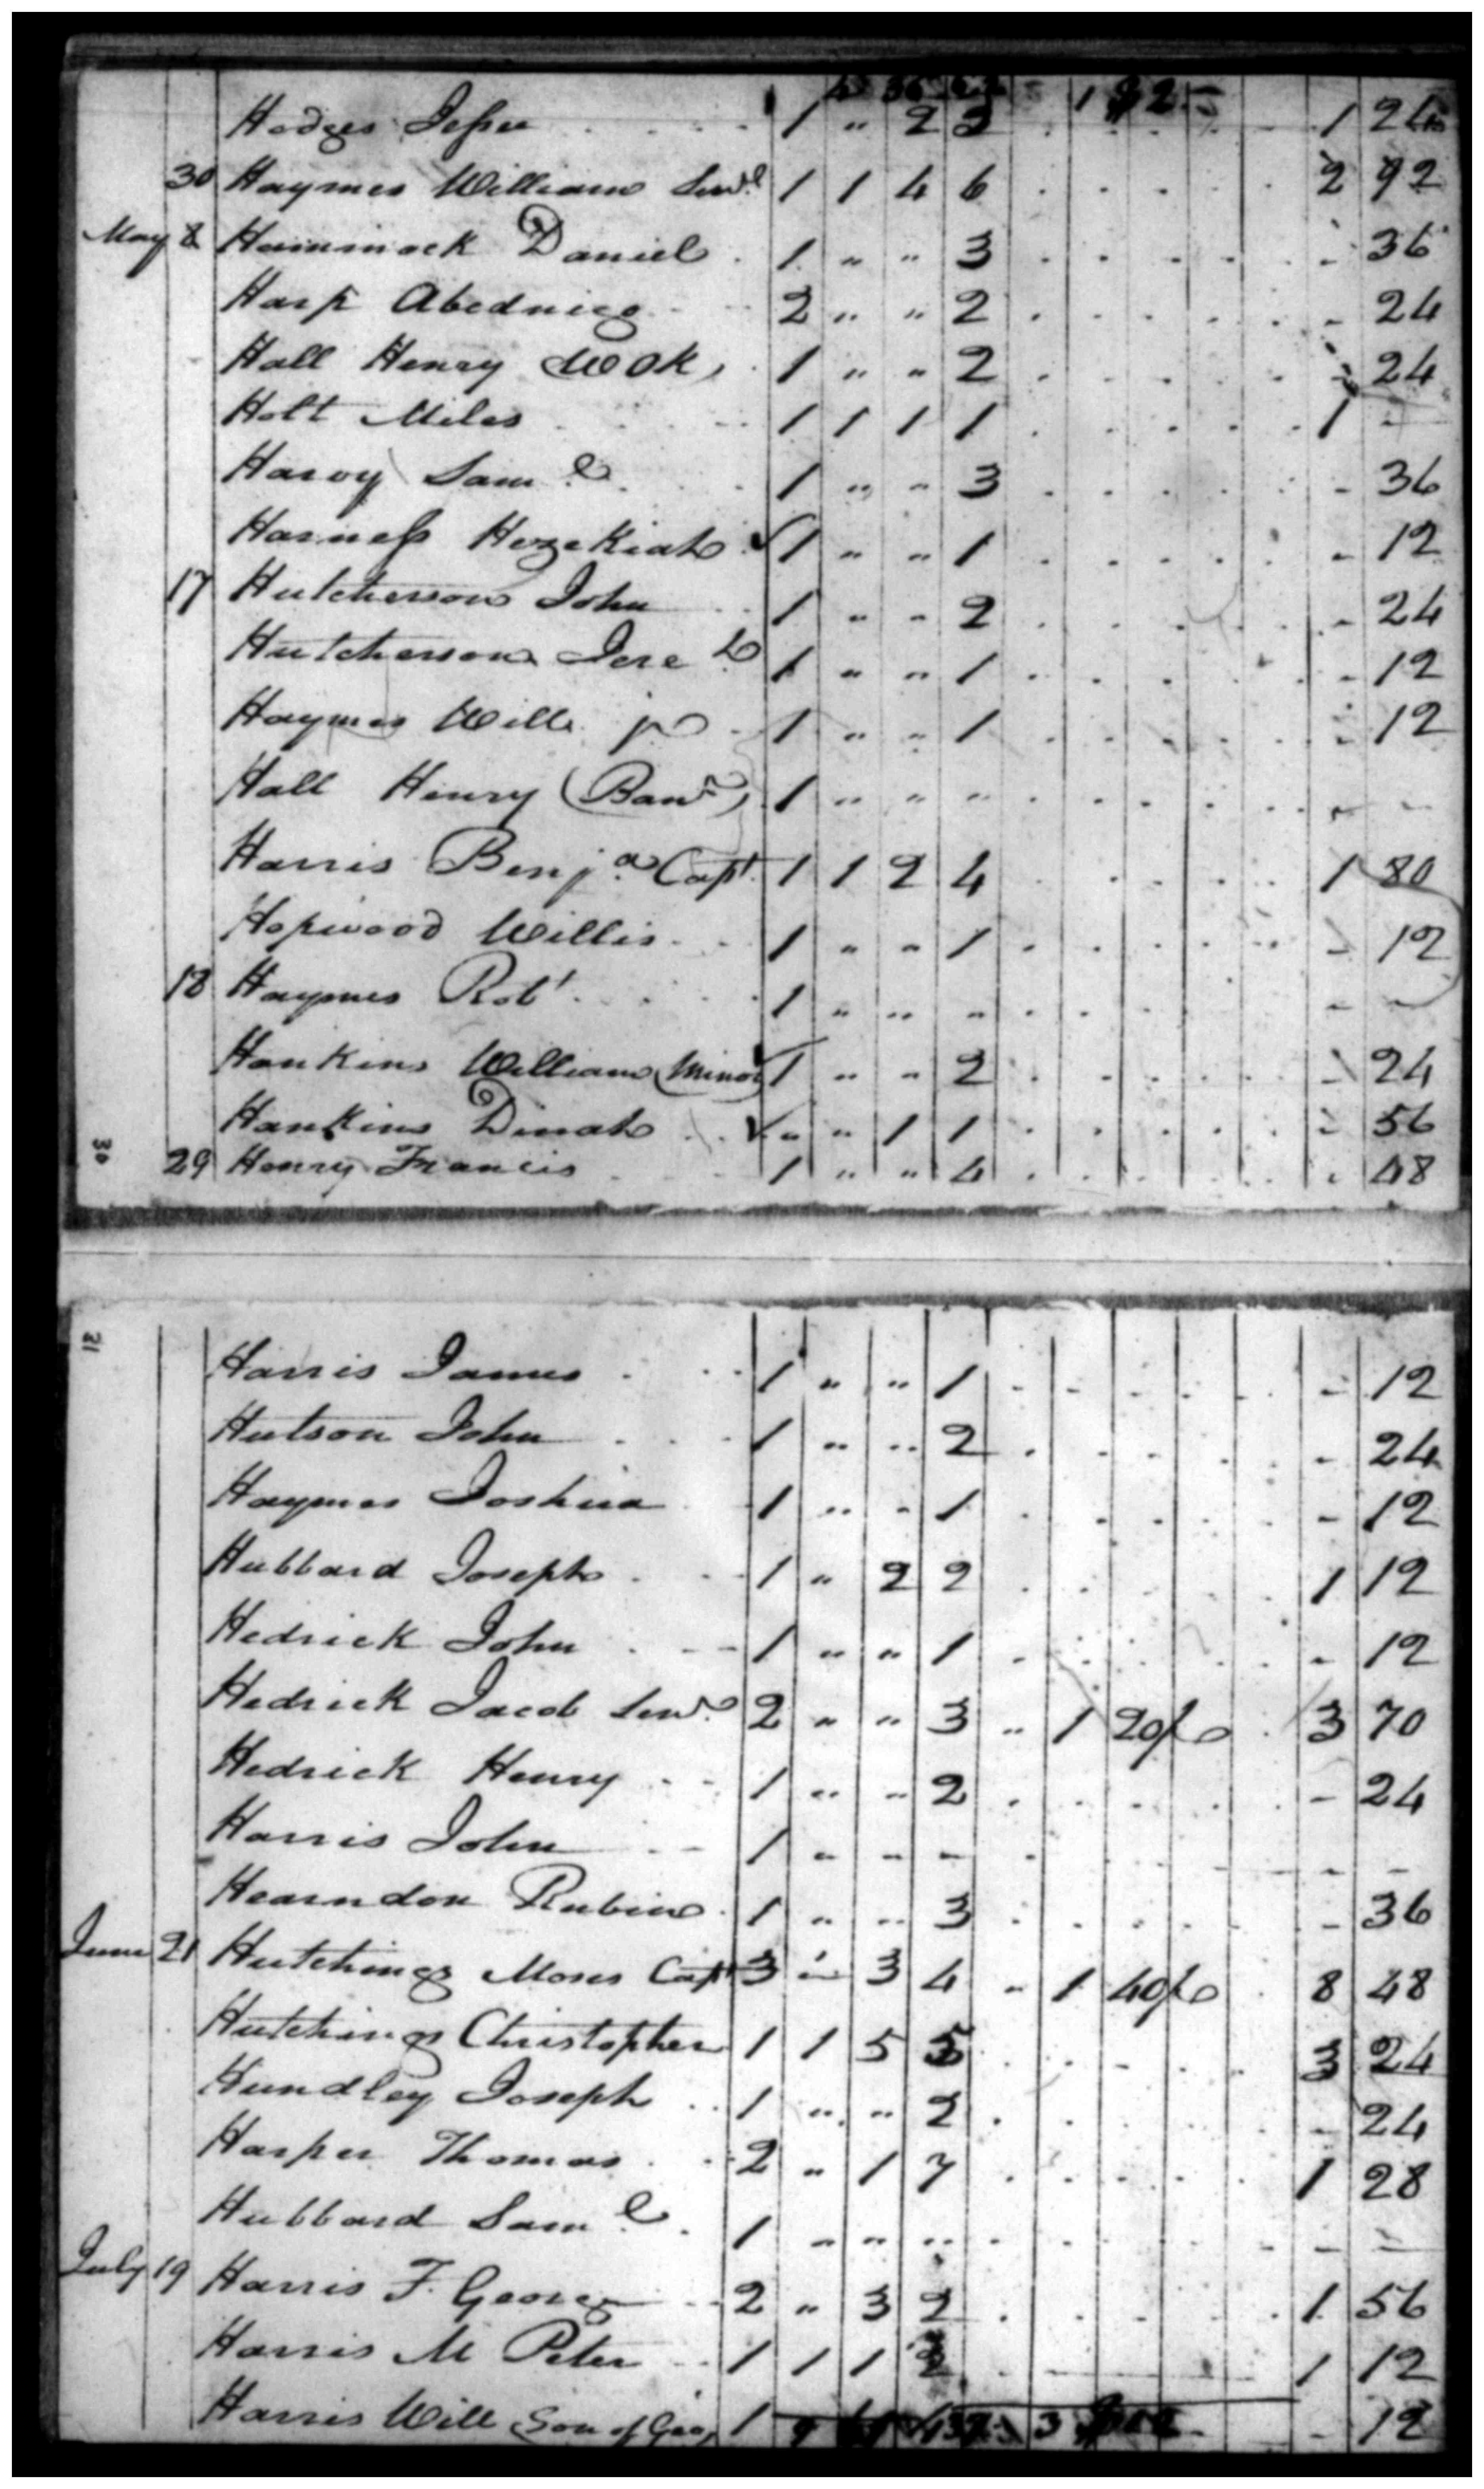 Hodges Jesse 1 " 2 3 1 24
30 Haymes William Senr 1 1 4 6 2 92
May 8 Hammock Daniel 1 " " 3 - 36
Harp Abednigo 2 " " 2 - 24
Hall Henry 1 " " 2 - 24
Holt Miles 1 1 1 1 1 -
Harvy Saml 1 " " 3 - 36
Harness Hezekiah 1 " " 1 - 12
17 Hutcherson John 1 " " 2 - 24
Hutcherson Jereh 1 " " 1 - 12
Haymes Will jr 1 " " 1 - 12
Hall Henry (Banr) 1 " " " - -
Harris Benja Capt 1 1 2 4 1 80
Hopwood Willis 1 " " 1 - 12
18 Haymes Robt 1 " " " - -
Hankins William (Minor) 1 " " 2 - 24
Hankins Dinah " " 1 1 - 56
30 29 Henry Francis 1 " " 4 - 48
31
Harris James 1 " " 1 - 12
Hutson John 1 " " 2 - 24
Haymes Joshua 1 " " 1 - 12
Hubbard Joseph 1 " 2 2 1 12
Hedrick John 1 " " 1 - 12
Hedrick Jacob Senr 2 " " 3 " 1 20/ 3 70
Hedrick Henry 1 " " 2 - 24
Harris John 1 - - - - -
Hearndon Rubin 1 " " 3 - 36
June 21 Hutchings Moses Capt 3 " 3 4 - 1 40/ 8 48
Hutchings Christopher 1 1 5 5 3 24
Hundley Joseph 1 " " 2 - 24
Harper Thomas 2 " 1 7 1 28
Hubbard Saml 1 " " " - -
July 19 Harris F. George 2 " 3 2 1 56
Harris M Peter 1 1 1 2 1 12
Harris Will Son of Geo 1 - 12